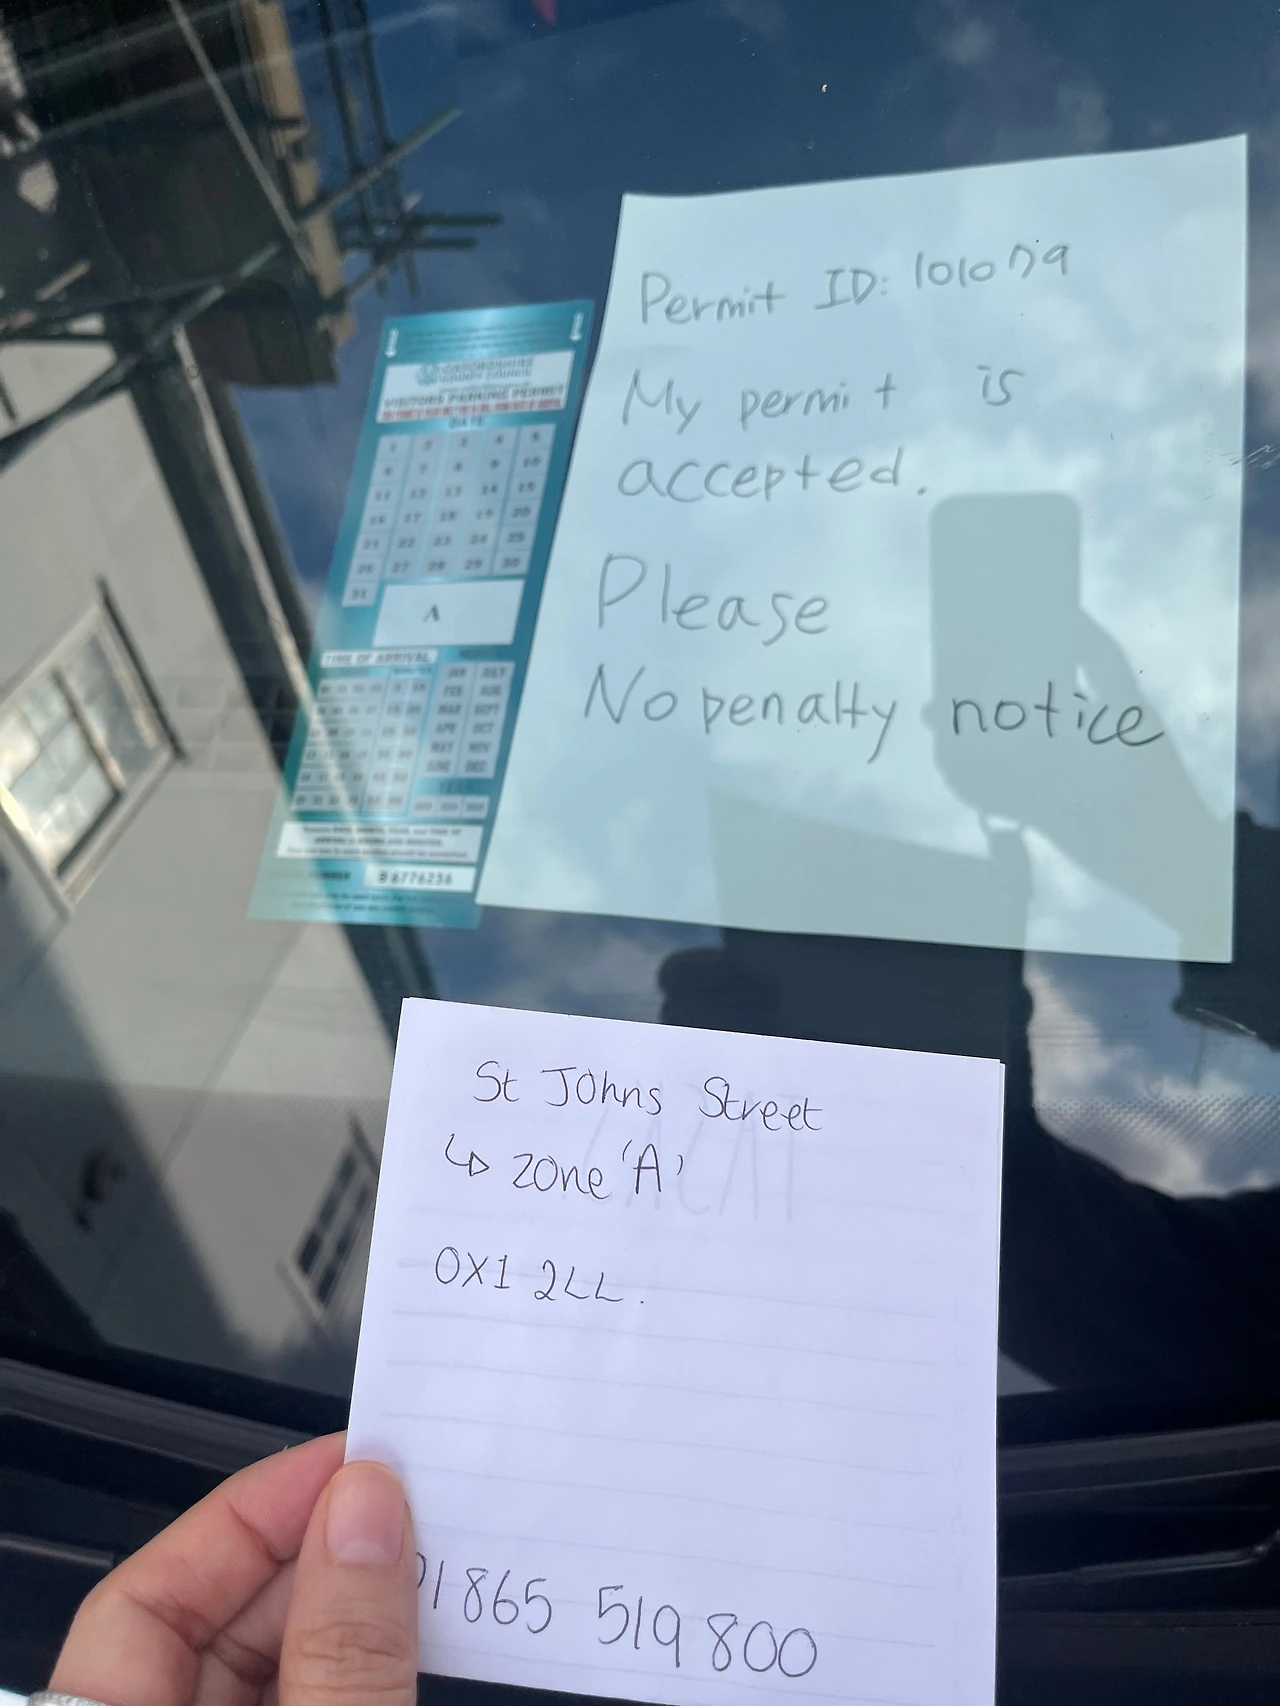 OXFORDSHIRE
COUNTY COUNCIL
VISITORS PARKING PERMIT
DATE
1 2 3 4 5
6 7 8 9 10
11 12 13 14 15
16 17 18 19 20
21 22 23 24 25
26 27 28 29 30
31
A
TIME OF ARRIVAL
MINUTES
JAN JULY
FEB AUG
MAR SEPT
APR OCT
MAY NOV
JUNE DEC
YEAR
NUMBER
B6776236
Permit ID: 101079
My permit is
accepted.
Please
No penalty notice
St Johns Street
↳ zone 'A'
OX1 2LL.
01865 519800